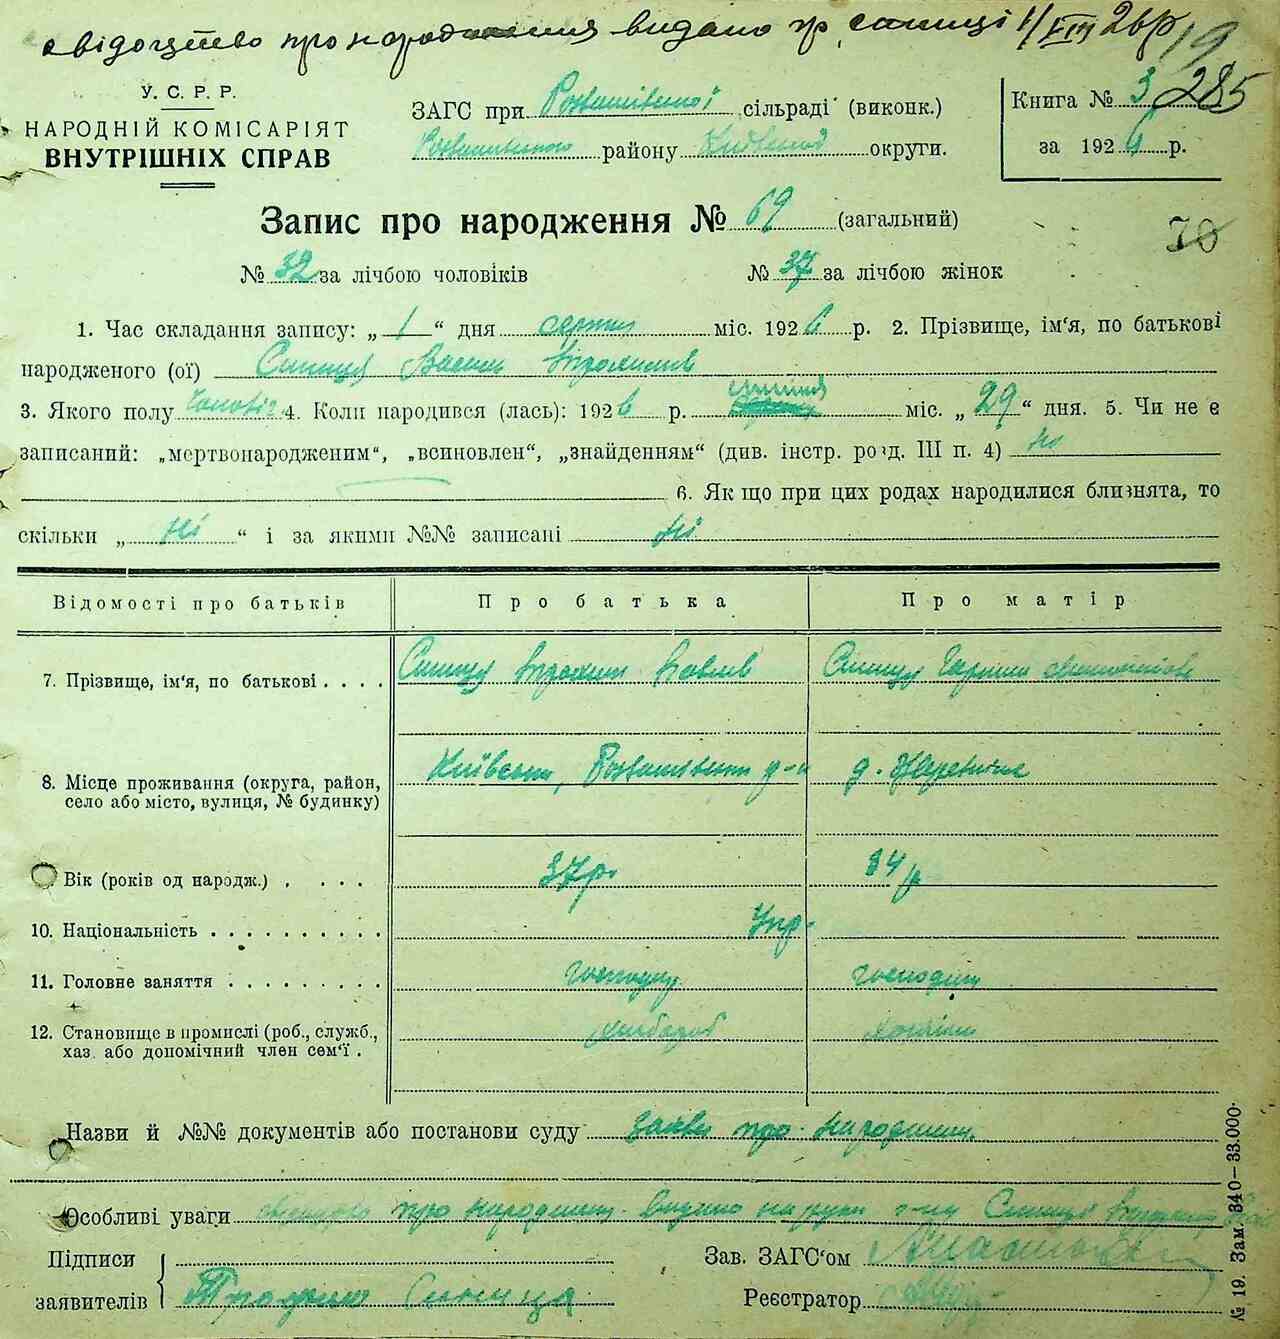 свідоцтво про народження видано гр. синиці 1/VIII 26р 19
У. С. Р. Р.
НАРОДНІЙ КОМІСАРІЯТ
ВНУТРІШНІХ СПРАВ
ЗАГС при Розважівської сільраді (виконк.)
Розважівського району Київської округи.
Книга № 3 285
за 1926 р.
Запис про народження № 69 (загальний)
70
№ 32 за лічбою чоловіків № 37 за лічбою жінок
1. Час складання запису: „ 1 “ дня серпня міс. 1926 р. 2. Прізвище, ім'я, по батькові
народженого (ої) Синиця Василь Трохимів
3. Якого полу Чоловіч 4. Коли народився (лась): 1926 р. липня міс. „ 29 “ дня. 5. Чи не є
записаний: „мертвонародженим“, „всиновлен“, „знайденням“ (див. інстр. розд. III п. 4) Ні
6. Якщо при цих родах народилися близнята, то
скільки „ Ні “ і за якими №№ записані Ні
Відомості про батьків Про батька Про матір
7. Прізвище, ім'я, по батькові . . . . Синиця Трохим Синиця
8. Місце проживання (округа, район, село або місто, вулиця, № будинку) Київська, Розважівськи р-н
Вік (років од народж.) . . . . 37р. 34р
10. Національність . . . . . . . . . . Укр.
11. Головне заняття . . . . . . . . . господар господин
12. Становище в промислі (роб., служб.,
хаз. або допомічний член сем'ї . хлібороб
Назви й №№ документів або постанови суду Заява про народжен.
Особливі уваги свідоцтво про народжен. видано на руки г-ну Синиці
Підписи
заявителів Трофим Синица
Зав. ЗАГС'ом
Реєстратор
№ 19. Зам. 340—33.000.